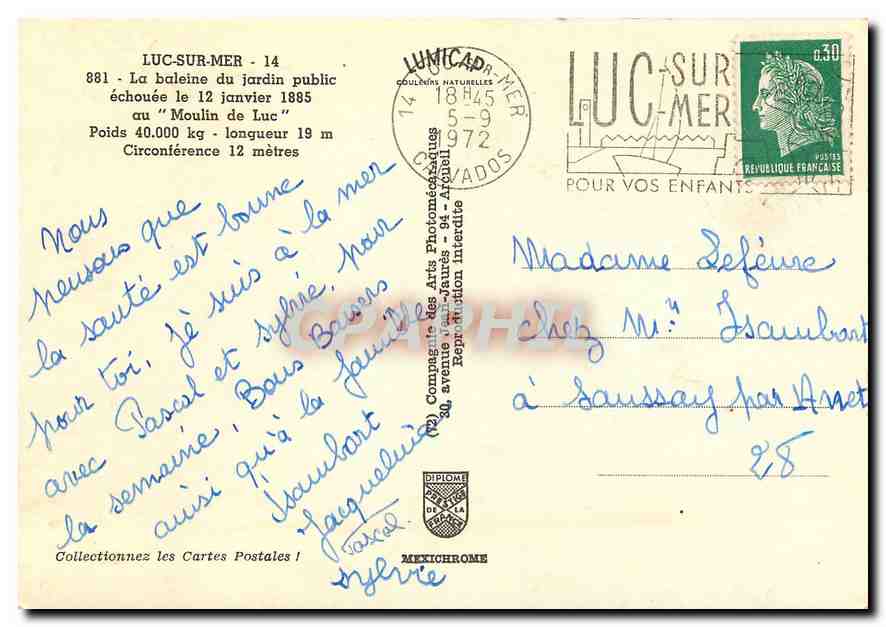 LUC-SUR-MER - 14
881 - La baleine du jardin public
échouée le 12 janvier 1885
au "Moulin de Luc"
Poids 40.000 kg - longueur 19 m
Circonférence 12 mètres
LUMICAP
COULEURS NATURELLES
14 LUC-SUR-MER
18H45
5-9
1972
CALVADOS
LUC-SUR
-MER
POUR VOS ENFANTS
0,30
POSTES
REPUBLIQUE FRANÇAISE
Nous
pensons que
la santé est bonne
pour toi, je suis à la mer
avec Pascal et Sylvie, pour
la semaine. Bons Baisers
ainsi qu'à la famille
Isambart
Jacqueline
Pascal
Sylvie
(72) Compagnie des Arts Photomécaniques
30, avenue Jean-Jaurès - 94 - Arcueil
Reproduction interdite
CPAPHIL
Madame Lefévre
chez Mr Isambart
à Saussay par Anet
28
DIPLOME
PRESTIGE
DE LA
FRANCE
MEXICHROME
Collectionnez les Cartes Postales !